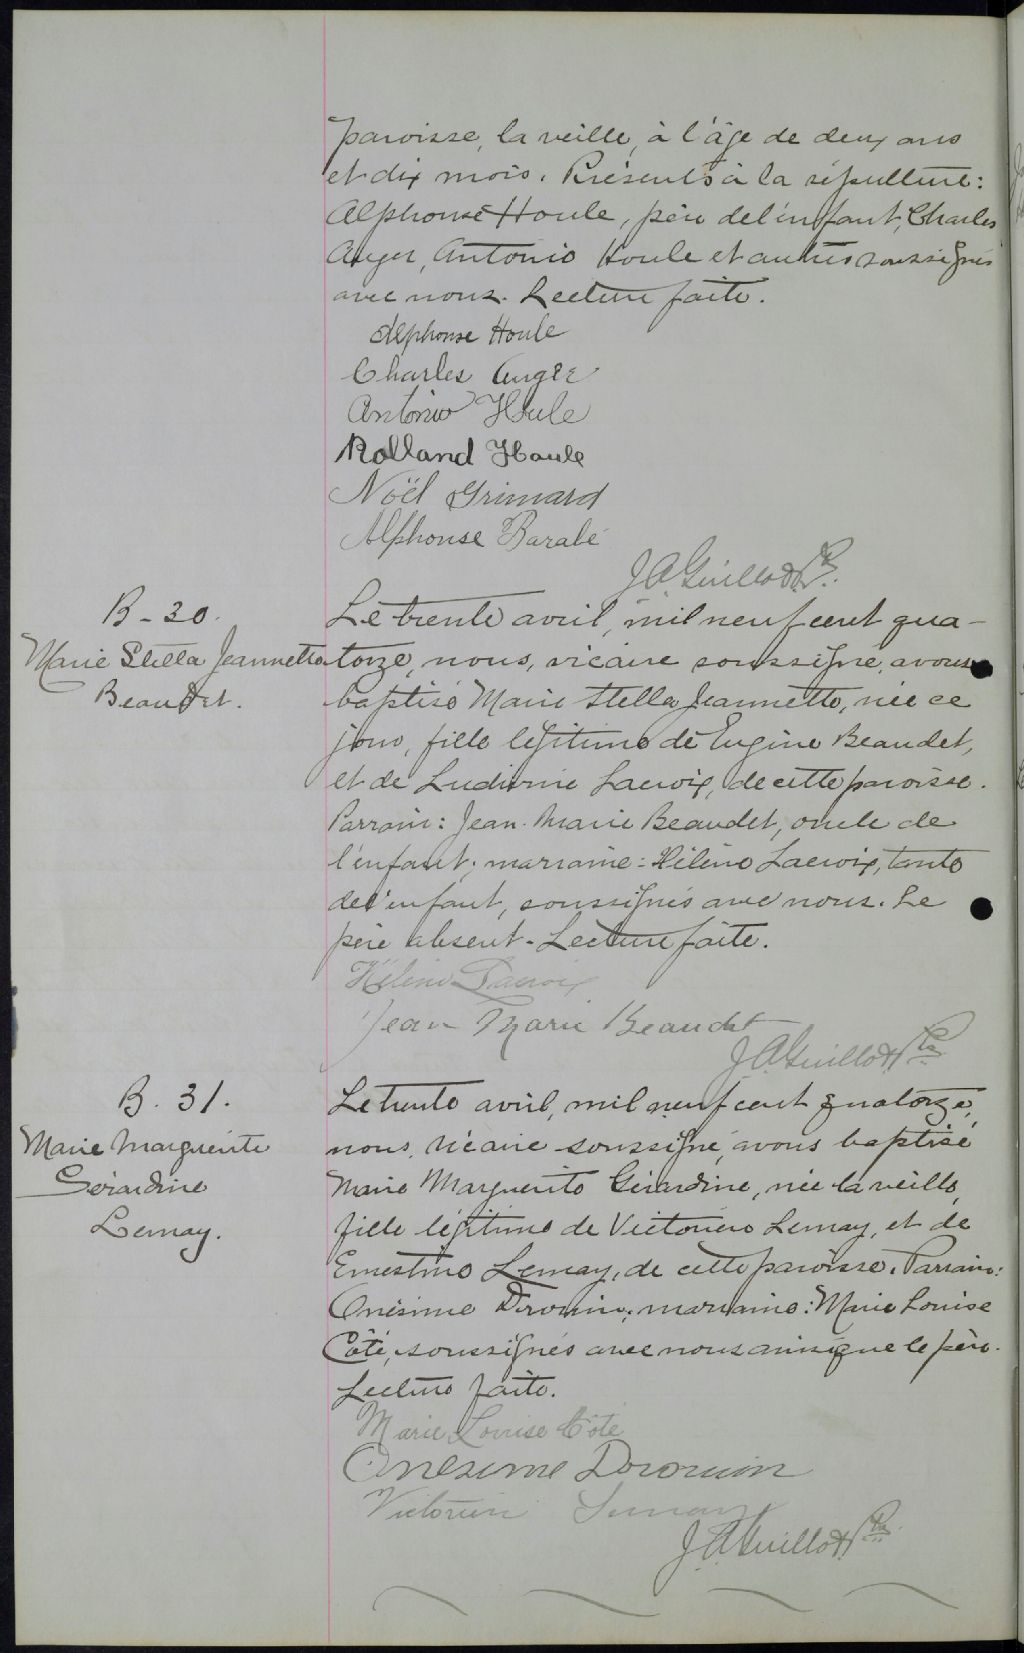 paroisse, la veille, à l'âge de deux ans
et dix mois. Présents à la sépulture:
Alphonse Houle, père de l'enfant, Charles
Auger, Antonio Houle et autres soussignés
avec nous. Lecture faite.
Alphonse Houle
Charles Auger
Antonio Houle
Rolland Houle
Noël Grimard
Alphonse Barabé
J.A. Guillot Ptre.
B-30.
Marie Stella Jeannette
Beaudet.
Le trente avril, mil neuf cent qua-
torze, nous, vicaire soussigné, avons
baptisé Marie Stella Jeannette, née ce
jour, fille légitime de Eugène Beaudet,
et de Ludivine Lacroix, de cette paroisse.
Parrain: Jean-Marie Beaudet, oncle de
l'enfant; marraine: Hélène Lacroix, tante
de l'enfant, soussignés avec nous. Le
père absent. Lecture faite.
Hélène Lacroix
Jean Marie Beaudet
J.A. Guillot Ptre
B. 31.
Marie Marguerite
Gérardine
Lemay.
Le trente avril, mil neuf cent quatorze,
nous, vicaire soussigné, avons baptisé
Marie Marguerite Gérardine, née la veille,
fille légitime de Victorien Lemay, et de
Ernestine Lemay, de cette paroisse. Parrain:
Onésime Drouin; marraine: Marie Louise
Côté, soussignés avec nous ainsi que le père.
Lecture faite.
Marie Louise Côté
Onesime Drouin
Victorien Lemay
J.A. Guillot Ptre.